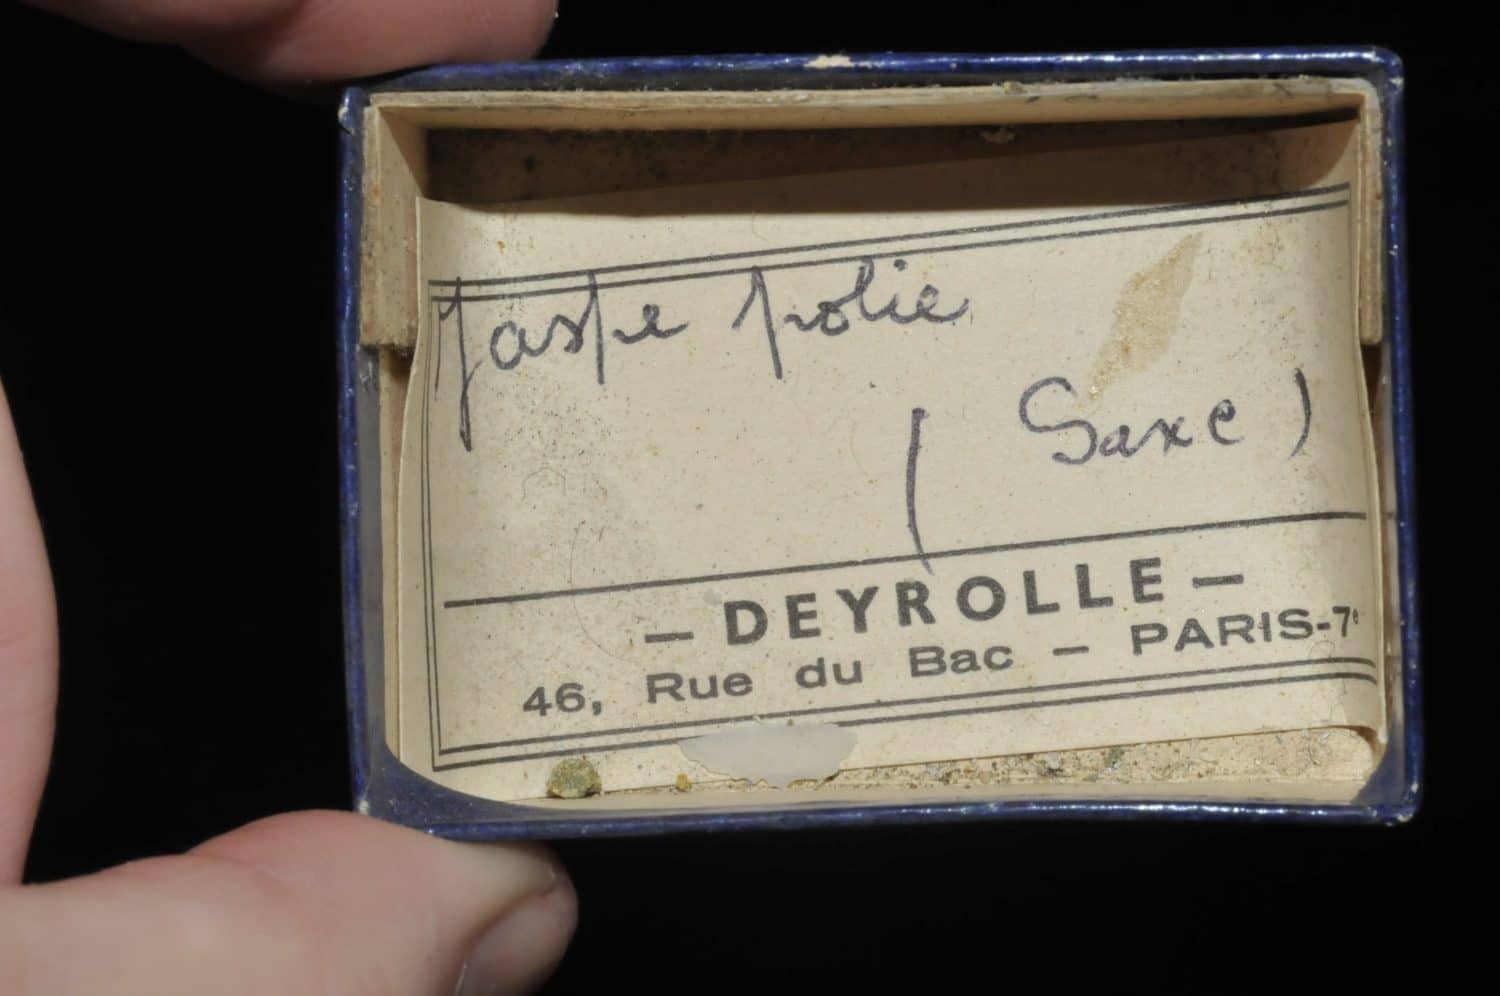 Jaspe polie
( Saxe )
— DEYROLLE —
46, Rue du Bac — PARIS-7e